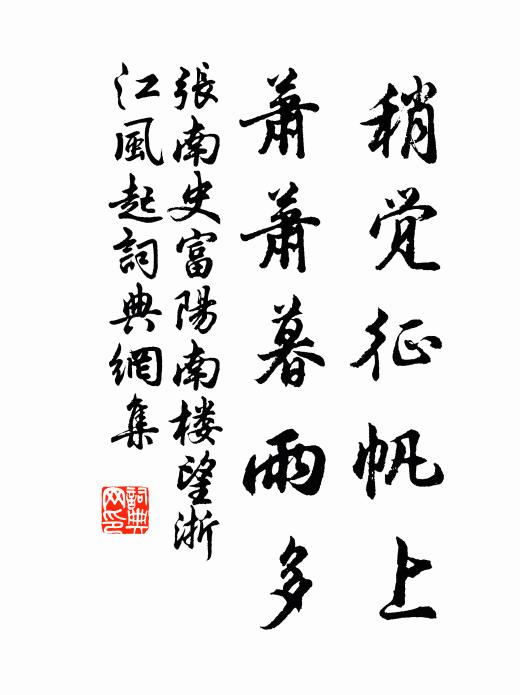 稍觉征帆上
蕭蕭暮雨多
張南史富陽南楼望浙
江風起詞典網集
詞典
网印